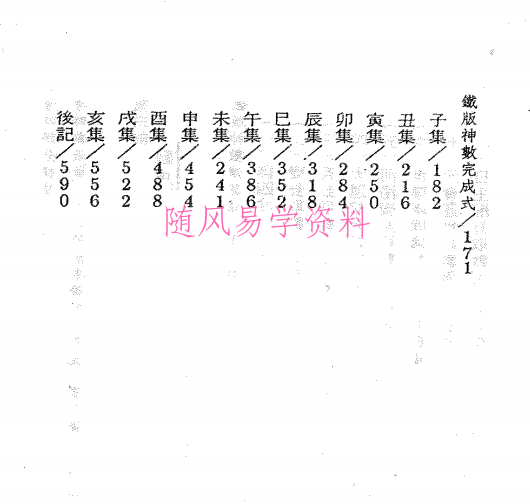 鐵版神數完成式/171
子集/182
丑集/216
寅集/250
卯集/284
辰集/318
巳集/352
午集/386
未集/241
申集/454
酉集/488
戌集/522
亥集/556
後記/590
随风易学资料